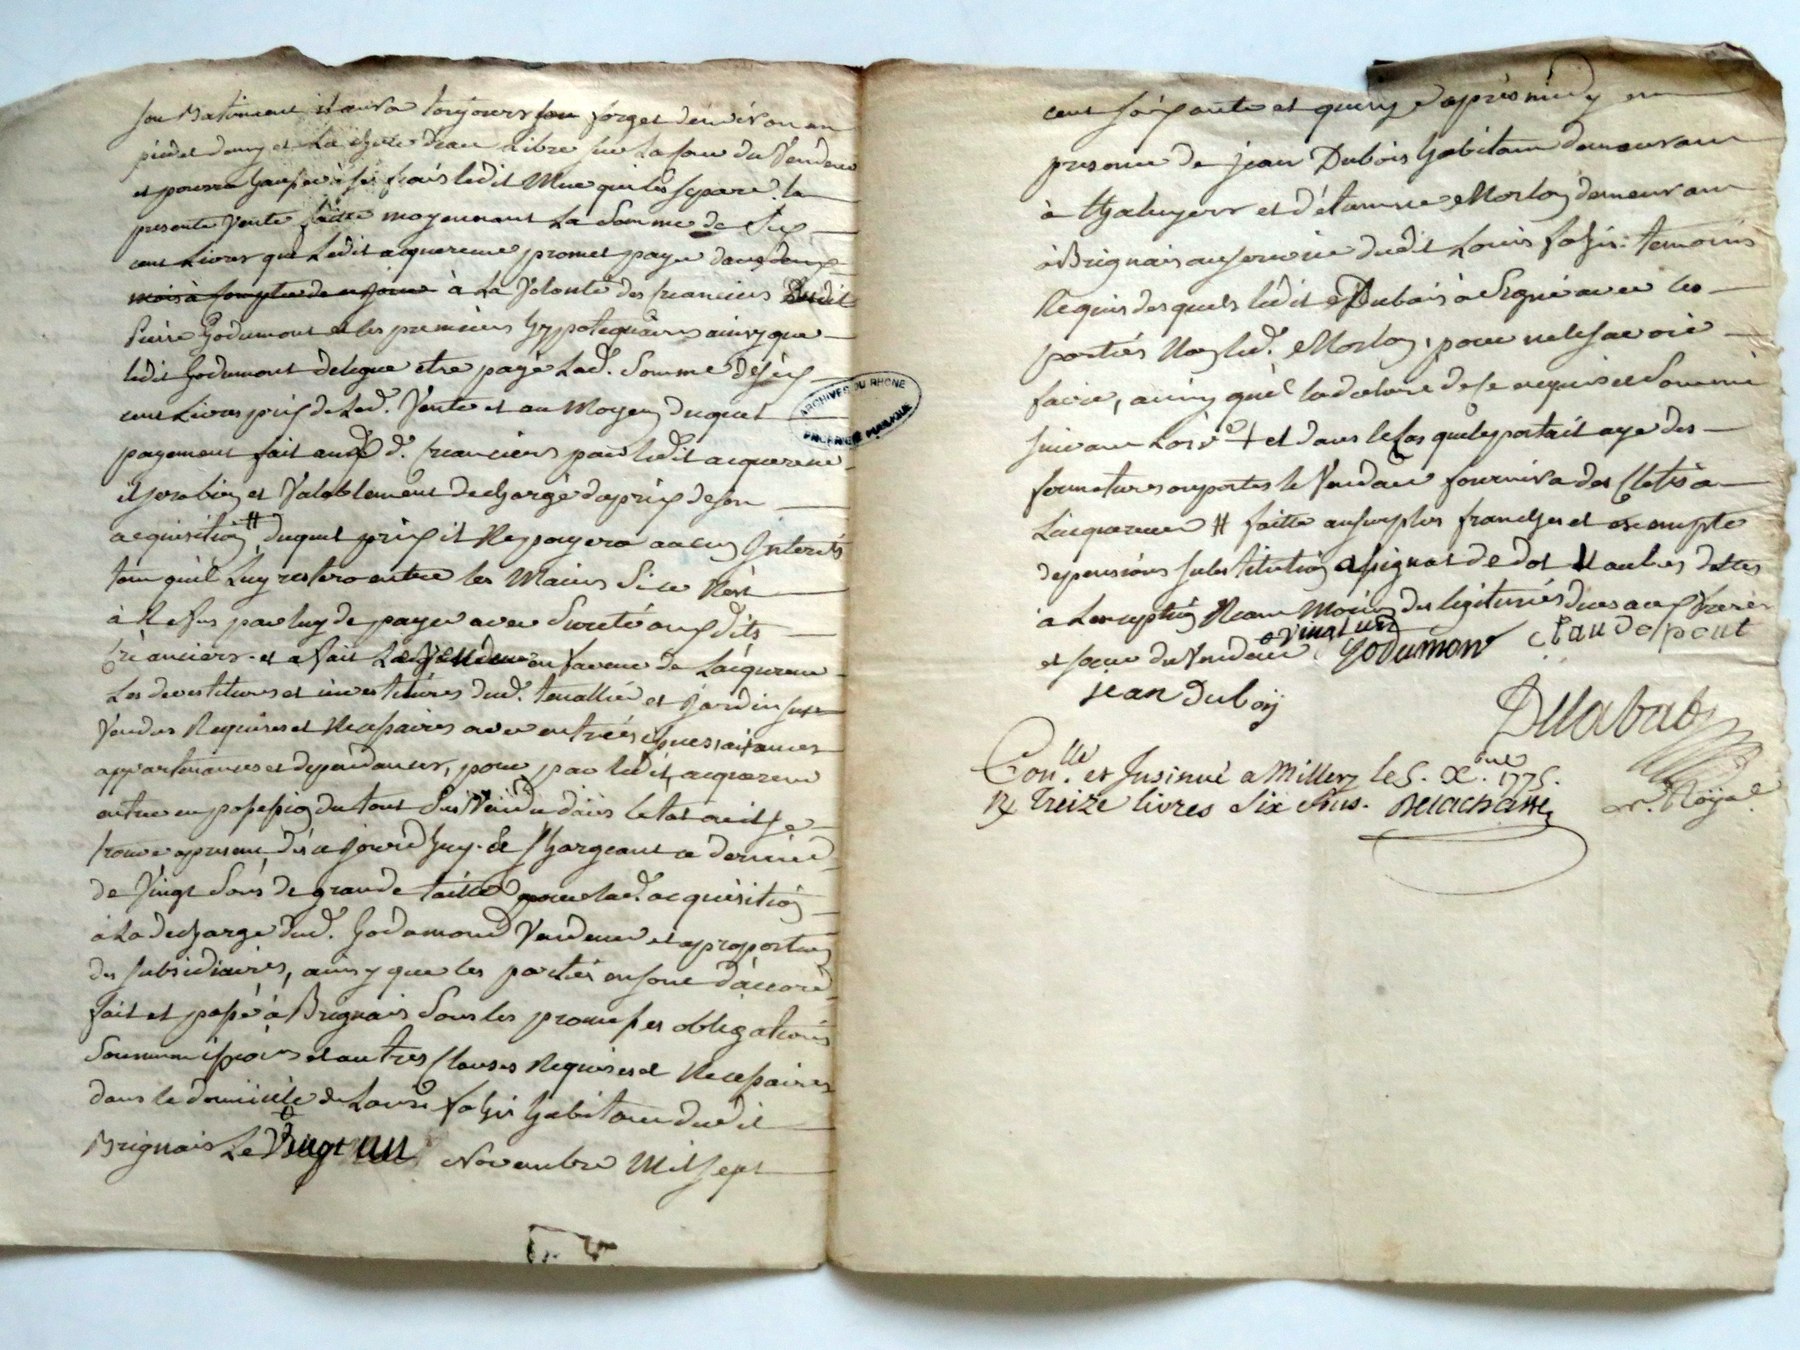 son Batiment il aura toujours son forget d'environ un
pied et demy et La chute d'eau Libre sur La cour du Vendeur
et pourra hausser à ses frais ledit Mur qui les separe. la
presente Vente faitte moyennant La Somme de Six
cent Livres que Ledit acquereur promet payer dans deux
mois à compter de ce jour à La Volonté des creanciers Dudit
Pierre Godumont et les premiers hypotequaires ainsy que
ledit Godumont delegue etre payé Lad. Somme de six
cent Livres prix de Lad. Vente et au Moyen duquel
payement fait auxd. d. creanciers par ledit acquereur
il sera bien et Valablement dechargé du prix de son
acquisition # duquel prix il Ne payera aucun Interets
tant qu'il Luy restera entre les Mains Si ce N'est
à Refus par luy de payer avec Sureté auxdits
Créanciers. et a fait Le Vendeur en faveur de L'acquereur
Les devestitures et investitures dud. tenallier et Jardin sus
Vendus Requises et Necessaires avec entrées issues aisances
appartenances et dependances, pour par ledit acquereur
entrer en possession du tout Sus Vendu dans letat ou il se
trouve apresent dès ce jourd'huy. Se Chargeant ce dernier
de Vingt Sous de grande taille pour lad. acquisition
à La decharge dud. Godumond Vendeur et aproportion
des subsidiaires, ainsy que les parties en sont d'accord
fait et passé à Brignais Sous les promesses obligations
Soumissions et autres Clauses Requises et Necessaires
dans le domicile de Louis fahis habitant dudit
Brignais Le Vingt un Novembre Mil sept
cent soixante et quinze après midy en
presence de jean Dubois habitant demeurant
à thaluyers et d'etienne Morlon demeurant
à Brignais au service dudit Louis fahis. temoins
Requis des quels ledit Dubois a Signé avec les
parties Non led. Morlon, pour ne le scavoir
faire, ainsy quil la declaré de ce enquis et Sommé
suivant Lord.ce + et dans le Cas quil y ait aye des
fermetures ou portes le Vendeur fournira des Clefs à
L'acquereur # faitte au surplus franche et exempte
de pensions substitution assignat de dot et autres dettes
à L'exception Neant Moins des legitimes dues aux freres
et sœur du Vendeur + vingt un Godumont Claude pent
jean duboij
Delabati
n.re Royal
Con.lle et Insinué a Millery le 5. X.bre 1775.
R. treize livres six sous. Delachasse
ARCHIVES DU RHONE
PROPRIÉTÉ PUBLIQUE